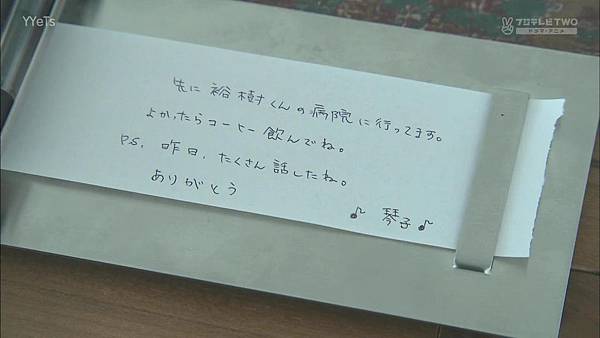 YYeTs
フジテレビTWO
ドラマ・アニメ
先に裕樹くんの病院に行ってます。
よかったらコーヒー飲んでね。
P.S. 昨日、たくさん話したね。
ありがとう
♪ 琴子 ♪